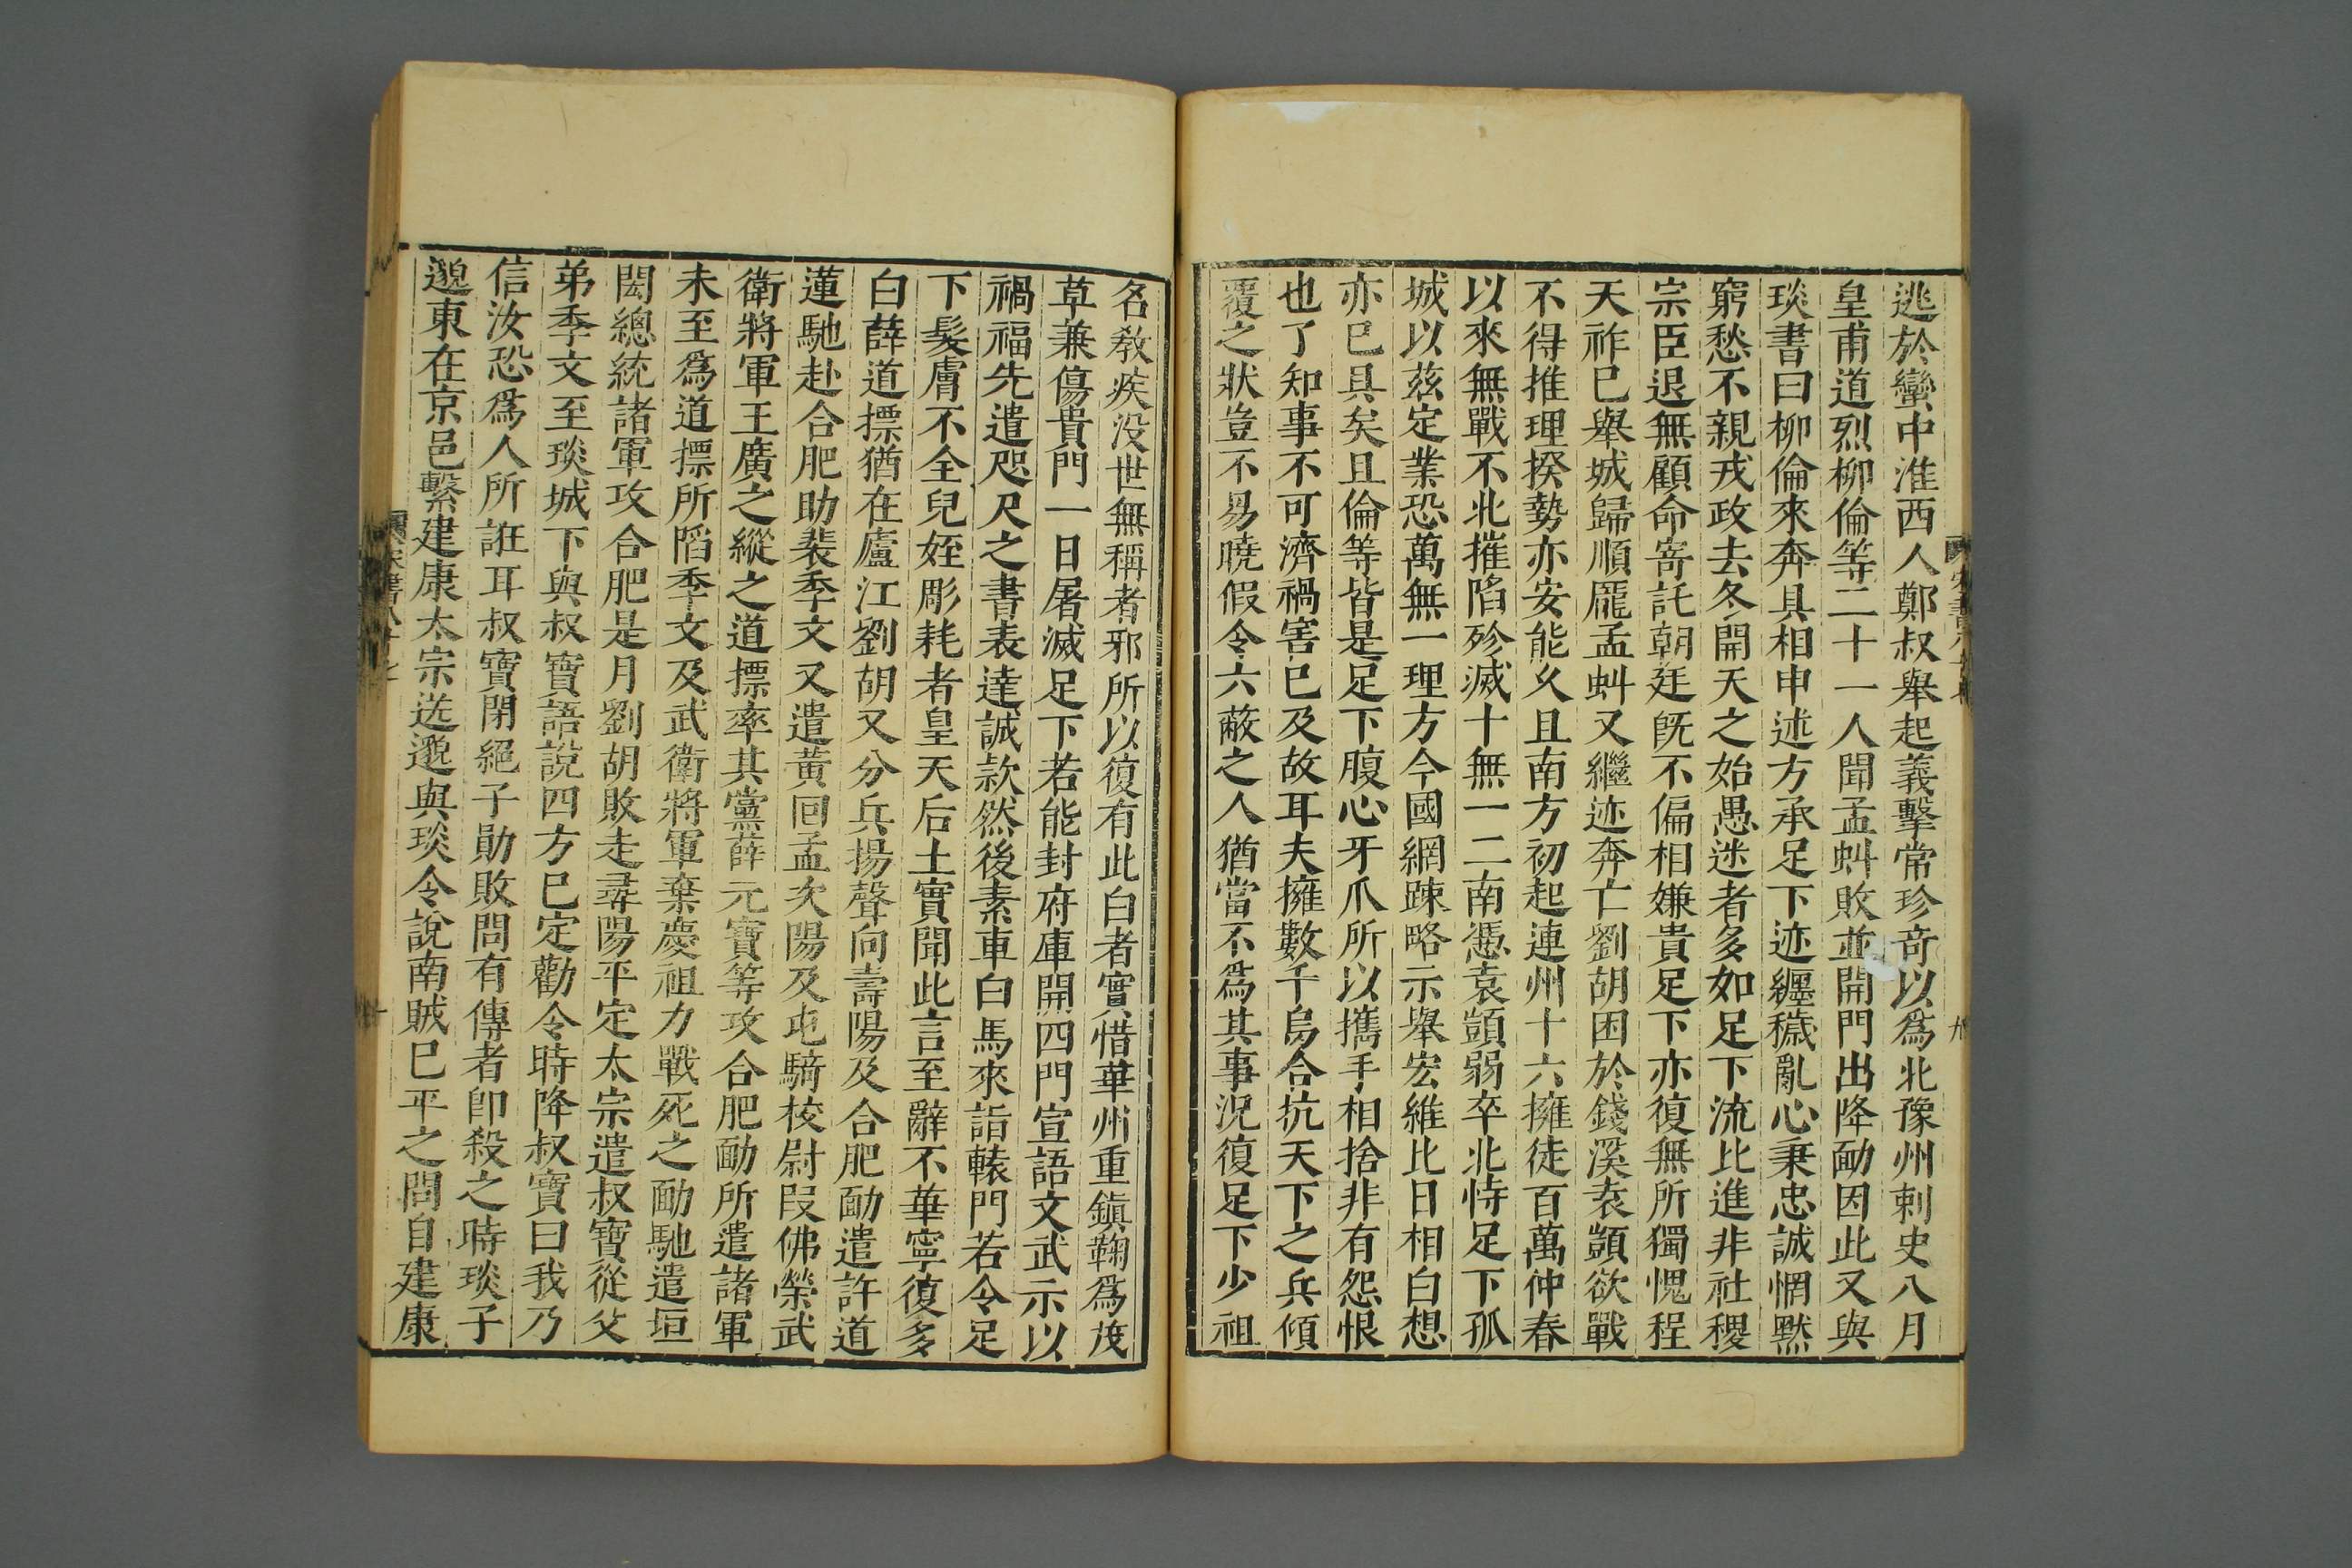 逃於蠻中淮西人鄭叔舉起義擊常珍奇以爲北豫州刺史八月
皇甫道烈柳倫等二十一人聞孟虯敗並開門出降勔因此又與
琰書曰柳倫來奔具相申述方承足下迹纏穢亂心秉忠誠惘默
窮愁不親戎政去冬開天之始愚迷者多如足下流比進非社稷
宗臣退無顧命寄託朝廷旣不偏相嫌貴足下亦復無所獨愧程
天祚已舉城歸順龐孟虯又繼迹奔亡劉胡困於錢溪袁顗欲戰
不得推理揆勢亦安能乆且南方初起連州十六擁徒百萬仲春
以來無戰不北摧陷殄滅十無一二南憑袁顗弱卒北恃足下孤
城以茲定業恐萬無一理方今國網踈略示舉宏維比日相白想
亦巳具矣且倫等皆是足下腹心牙爪所以攜手相捨非有怨恨
也了知事不可濟禍害已及故耳夫擁數千烏合抗天下之兵傾
覆之狀豈不易曉假令六蔽之人猶當不爲其事況復足下少祖
名教疾没世無稱者邪所以復有此白者實惜華州重鎭鞠爲茂
草兼傷貴門一日屠滅足下若能封府庫開四門宣語文武示以
禍福先遣咫尺之書表達誠款然後素車白馬來詣轅門若令足
下髮膚不全兒姪彫耗者皇天后土實聞此言至辭不華寧復多
白薛道摽猶在廬江劉胡又分兵揚聲向壽陽及合肥勔遣許道
蓮馳赴合肥助裴季文又遣黃回孟次陽及屯騎校尉段佛榮武
衛將軍王廣之縱之道摽率其黨薛元寶等攻合肥勔所遣諸軍
未至爲道摽所陷季文及武衛將軍棄慶祖力戰死之勔馳遣垣
閎總統諸軍攻合肥是月劉胡敗走尋陽平定太宗遣叔寶從父
弟季文至琰城下與叔寶語說四方巳定勸令時降叔寶曰我乃
信汝恐爲人所誑耳叔寶閉絕子勛敗問有傳者卽殺之時琰子
邈東在京邑繫建康太宗送邈與琰令說南賊巳平之問自建康